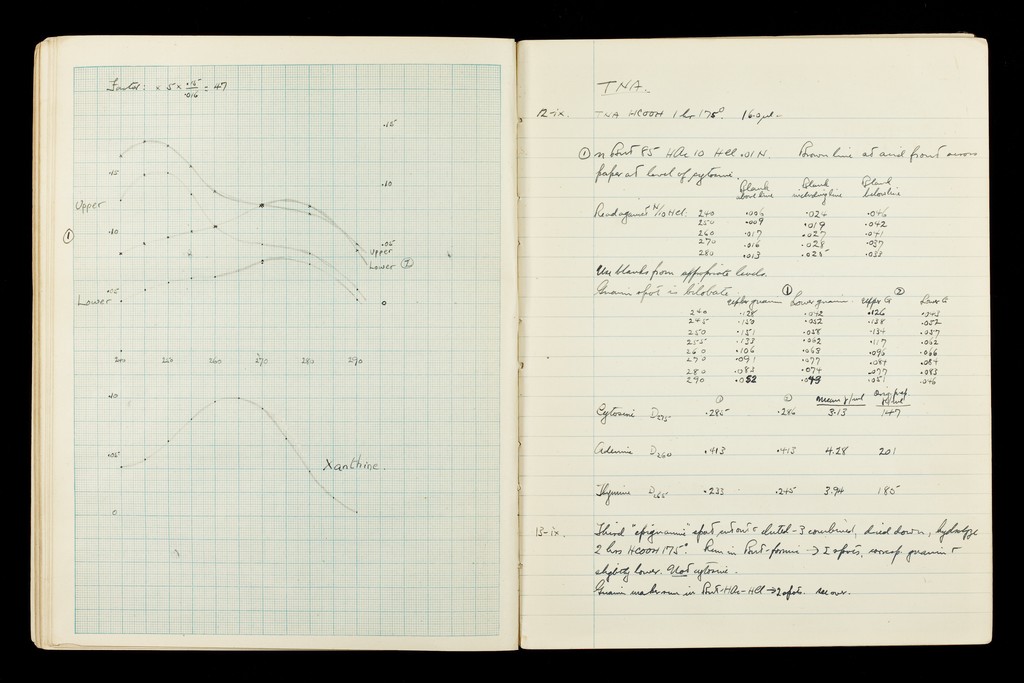 Factor: × 5 × .15/.016 = 47
.15
.15
.10
Upper
①
.10
.05
upper
Lower ②
.05
Lower
0
240 250 260 270 280 290
.10
.05
Xanthine.
0
TNA.
12-ix. TNA HCOOH 1 hr 175°. 16.0 μl.
① n But 85 HAc 10 HCl .01 N. Brown line at acid front across
paper at level of cytosine.
Blank above line Blank including line Blank below line
Read against N/10 HCl: 240 .006 .024 .046
250 .009 .019 .042
260 .017 .027 .041
270 .016 .028 .037
280 .013 .025 .038
Use blanks from appropriate levels.
Guanine spot is bilobate.
① ②
Upper guanine Lower guanine Upper G Lower G
240 .128 .042 .126 .043
245 .150 .052 .138 .052
250 .151 .058 .134 .057
255 .133 .062 .117 .062
260 .106 .069 .096 .066
270 .091 .077 .084 .084
280 .083 .074 .077 .083
290 .052 .049 .051 .046
① ② mean γ/ml
Cytosine D275 .285 .286 3.13 147
Adenine D260 .413 .413 4.28 201
Thymine D265 .233 .245 3.94 185
13-ix. Third "epiguanine" spot cut out & eluted - 3 combined, dried down, hydrolyse
2 hrs HCOOH 175°. Run in But-formic → 2 spots, corresp guanine &
slightly lower. Not cytosine.
Guanine makes run in But-HAc-HCl → 2 spots. recover.